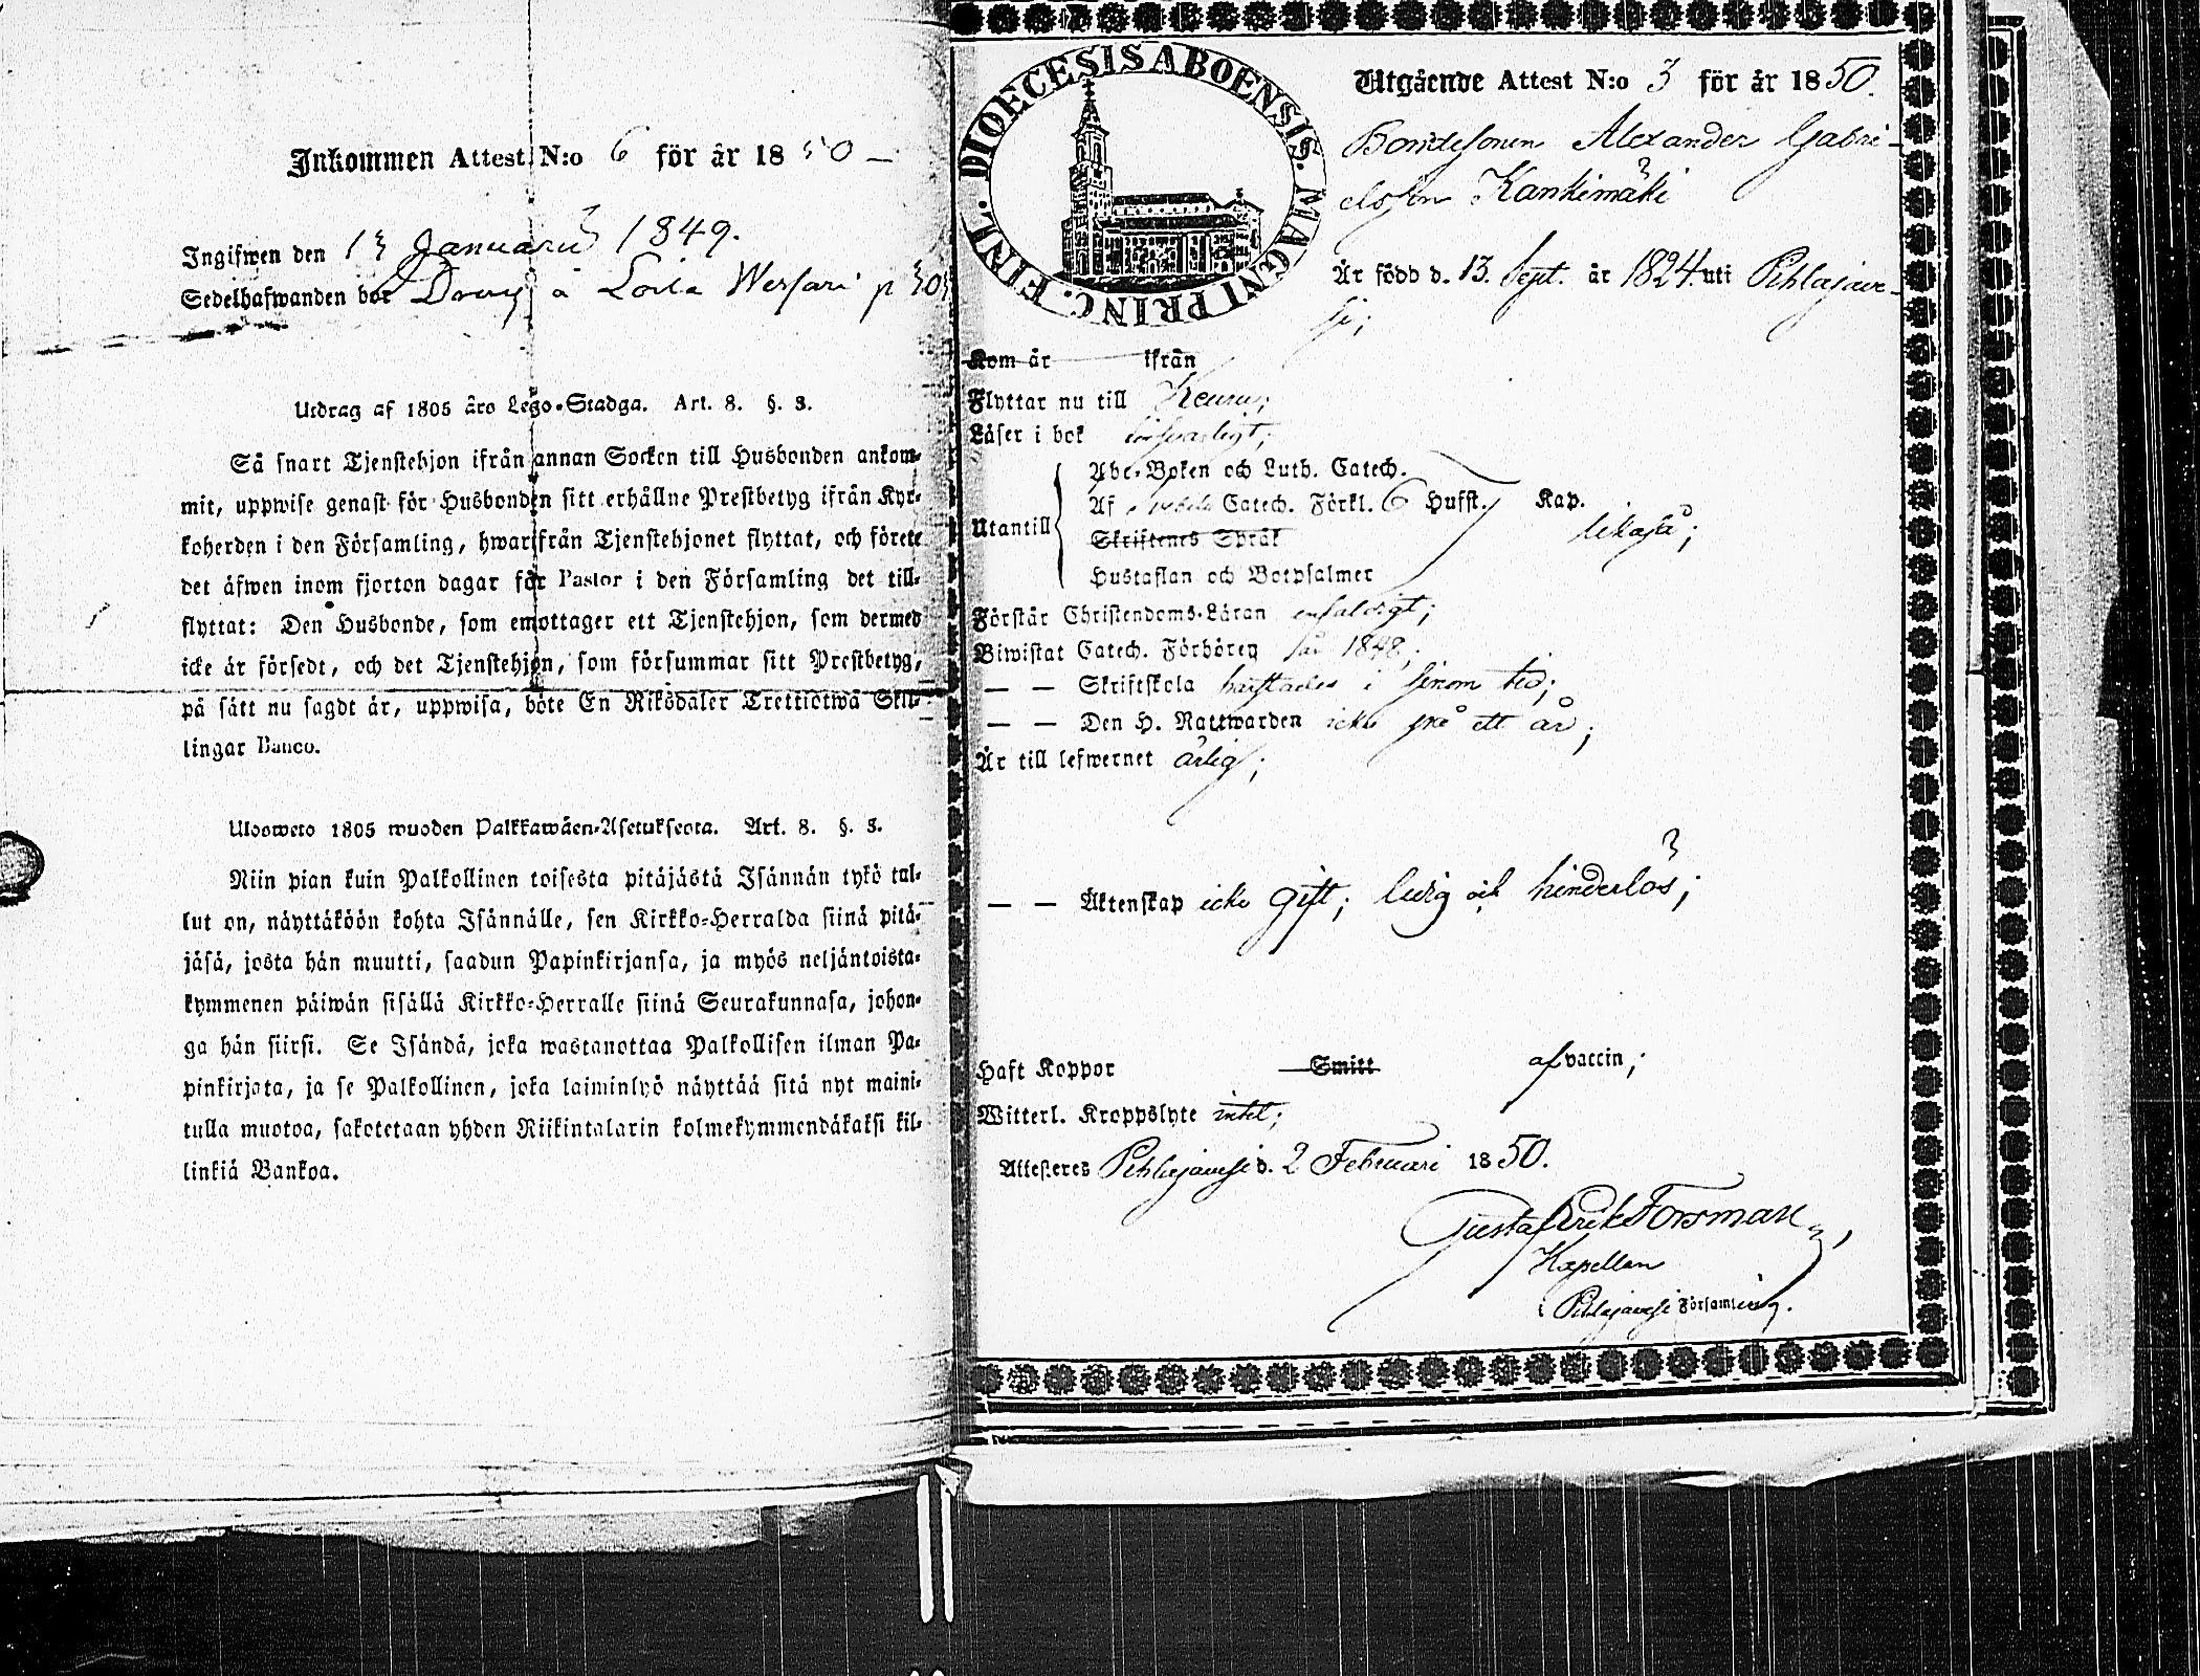 Inkommen Attest N:o 6 för år 1850
Ingifwen den 13 Januarii 1849.
Sedelhafwanden bor Dräng à Loila Wessari p 305
Utdrag af 1805 års Lego-Stadga. Art. 8. §. 3.
Så snart Tjenstehjon ifrån annan Socken till Husbonden ankom-
mit, uppwise genast för Husbonden sitt erhållne Prestbetyg ifrån Kyr-
koherden i den Församling, hwarifrån Tjenstehjonet flyttat, och förete
det äfwen inom fjorton dagar för Pastor i den Församling det till-
flyttat: Den Husbonde, som emottager ett Tjenstehjon, som dermed
icke är försedt, och det Tjenstehjon, som försummar sitt Prestbetyg,
på sätt nu sagdt är, uppwisa, böte En Riksdaler Trettiotwå Skil-
lingar Banco.
Uloosweto 1805 wuoden Palkkawäen-Asetuksesta. Art. 8. §. 3.
Niin pian kuin Palkollinen toisesta pitäjästä Isännän tykö tul-
lut on, näyttäköön kohta Isännälle, sen Kirkko-Herralda siinä pitä-
jäsä, josta hän muutti, saadun Papinkirjansa, ja myös neljäntoista-
kymmenen päiwän sisällä Kirkko-Herralle siinä Seurakunnasa, johon-
ga hän siirsi. Se Isändä, joka wastanottaa Palkollisen ilman Pa-
pinkirjata, ja se Palkollinen, joka laiminlyö näyttää sitä nyt maini-
tulla muotoa, sakotetaan yhden Riikintalarin kolmekymmendäkaksi kil-
linkiä Bankoa.
DIOECESIS ABOENSIS. MAGNI PRINC. FINL.
Utgående Attest N:o 3 för år 1850.
Bondesonen Alexander Gabri-
elsson Kankimäki
Är född d. 13. Sept. år 1824. uti Pihlajave-
si;
Kom år ifrån
Flyttar nu till Keuru;
Läser i bok försvarligt;
Utantill
Abc-Boken och Luth. Catech.
Af Catech. Förkl. 6 Hufst. Kap.
likaså;
Skriftenes Språk
Hustaflan och Botpsalmer
Förstår Christendoms-Läran enfaldigt;
Biwistat Catech. Förhören år 1848;
— — Skriftskola bivistades i sinom tid;
— — Den H. Nattwarden icke på ett år;
Är till lefwernet ärlig;
— — Äktenskap icke gift; ledig och hinderlös;
Haft Koppor Smitt af vaccin;
Witterl. Kroppslyte intet;
Attesteres Pihlajavesi d. 2 Februari 1850.
Gustaf Erik Forsman,
Kapellan
i Pihlajavesi Församling.